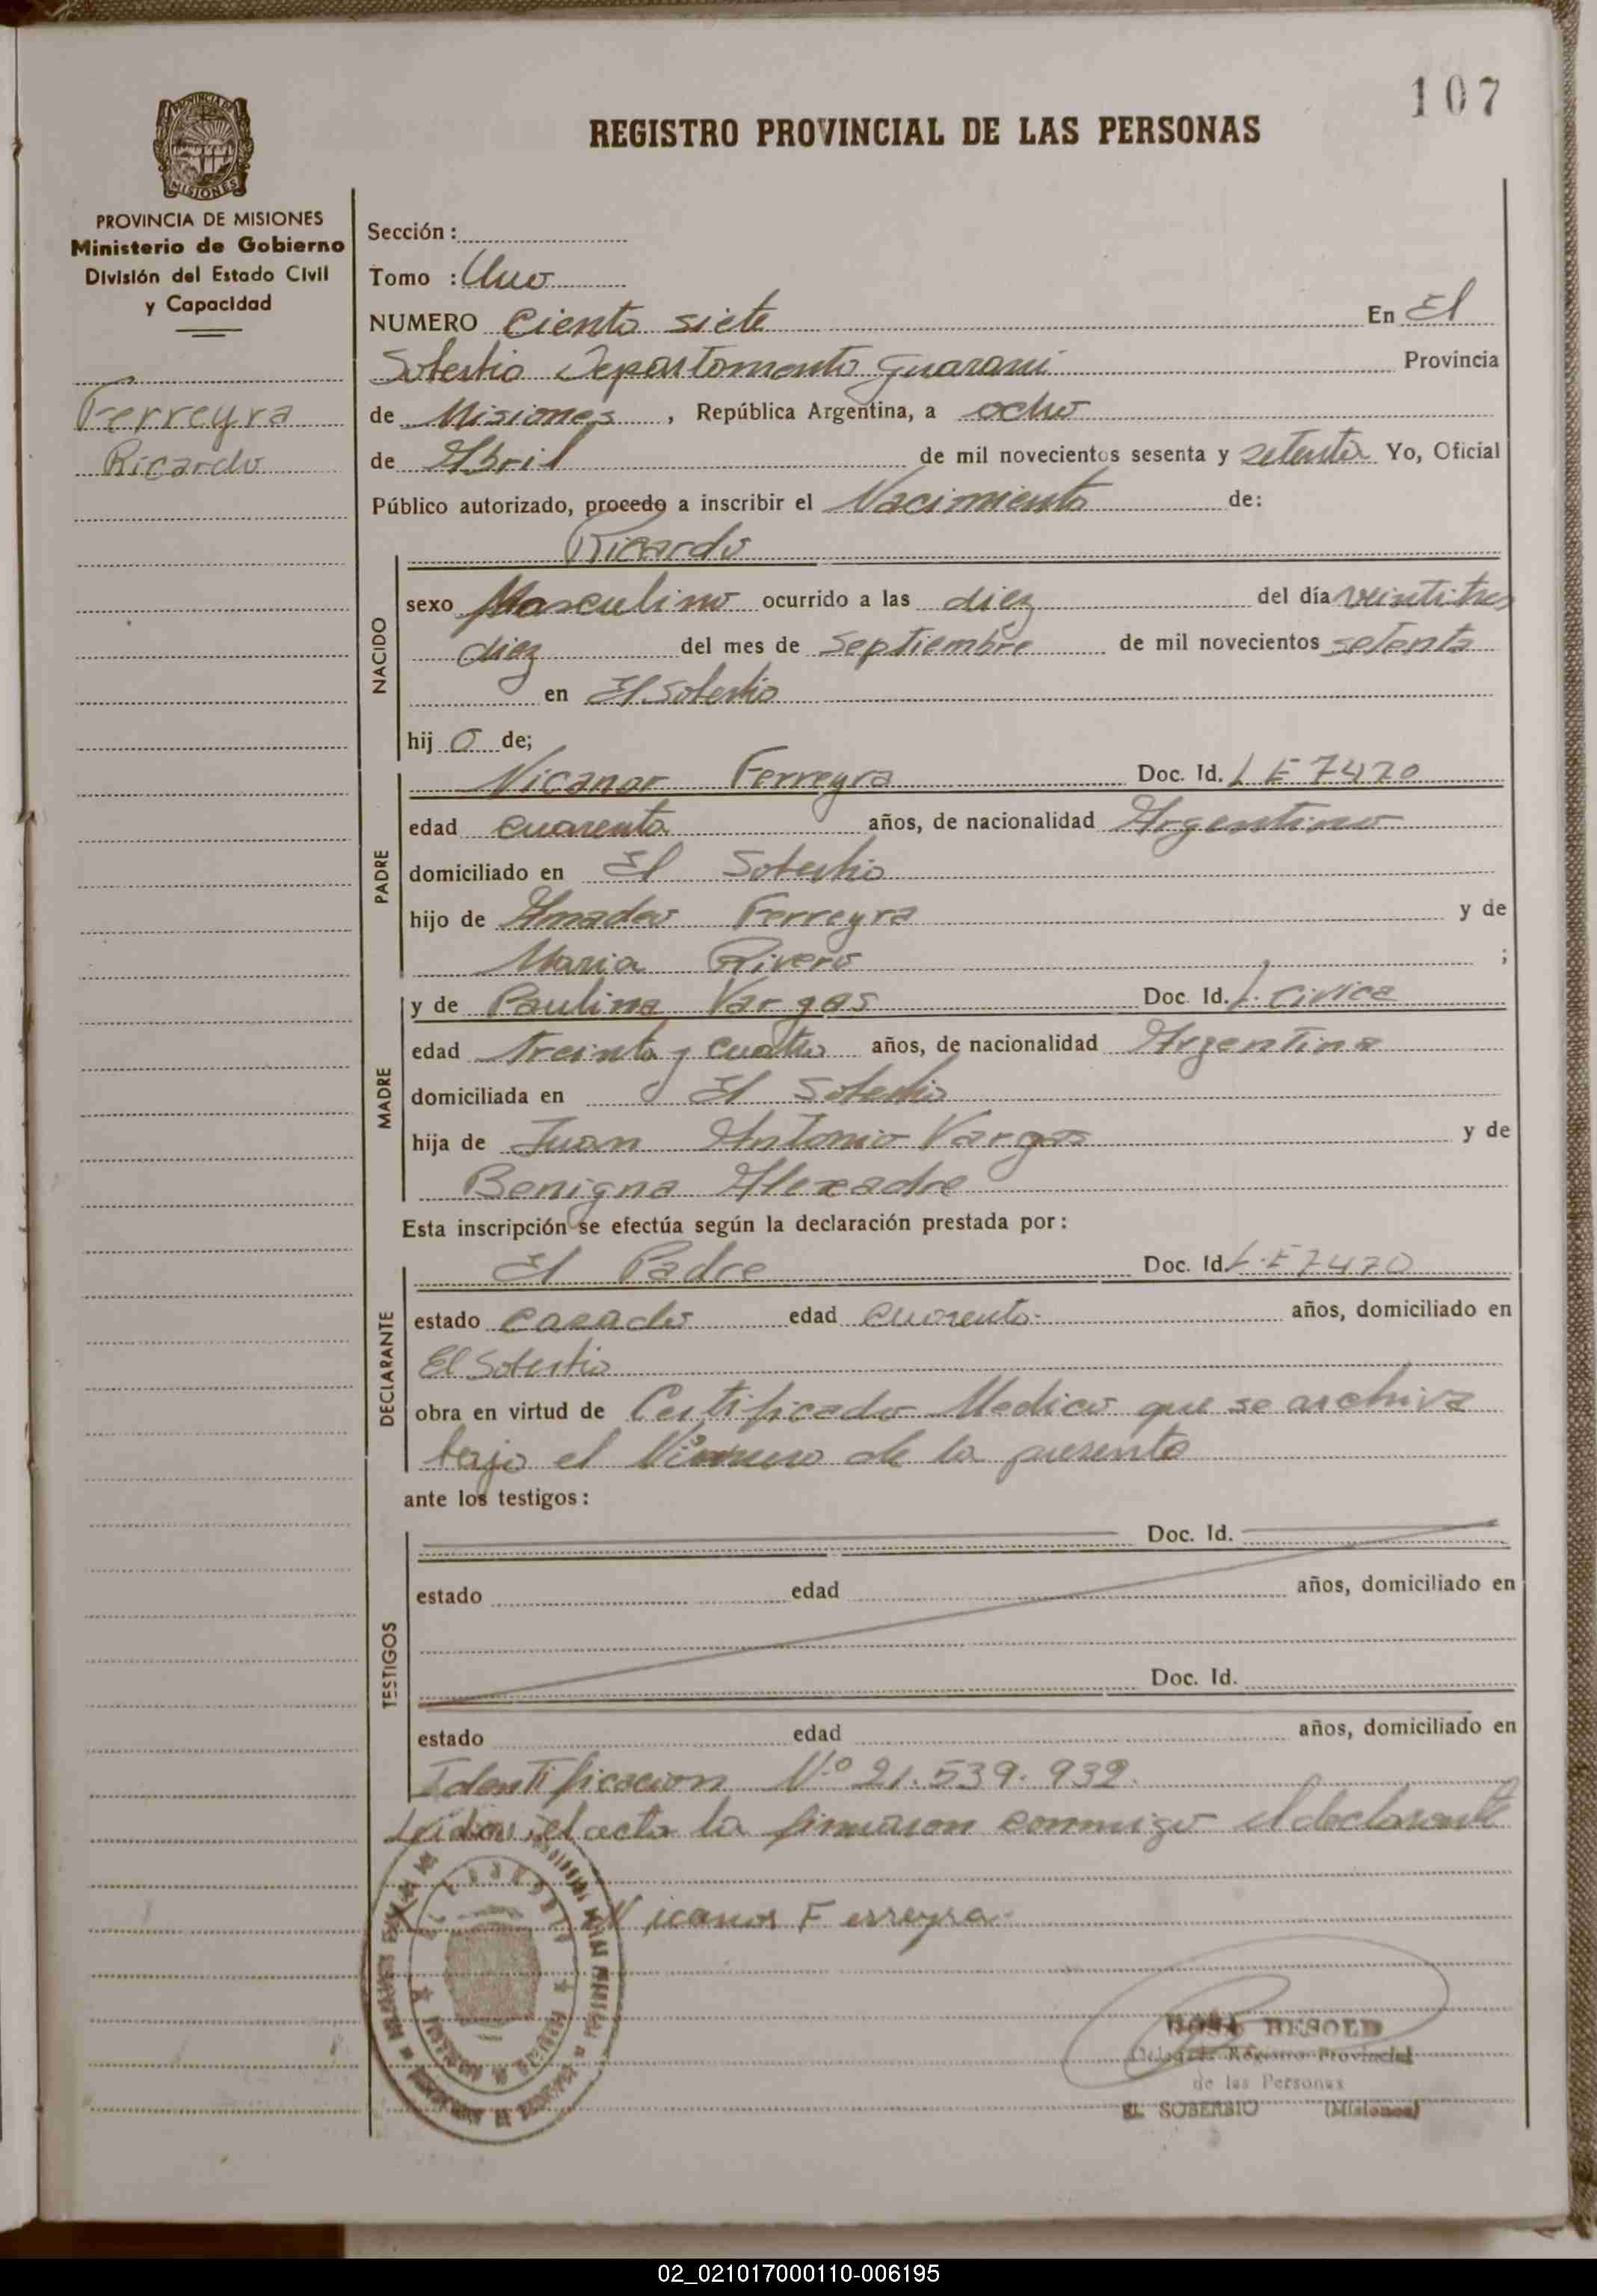 107
REGISTRO PROVINCIAL DE LAS PERSONAS
PROVINCIA DE MISIONES
Ministerio de Gobierno
División del Estado Civil
y Capacidad
Ferreyra
Ricardo
Sección :
Tomo : Uno
NUMERO Ciento siete En El
Soberbio Departamento Guarani Provincia
de Misiones , República Argentina, a ocho
de Abril de mil novecientos sesenta y setenta Yo, Oficial
Público autorizado, procedo a inscribir el Nacimiento de:
Ricardo
NACIDO
sexo Masculino ocurrido a las diez del día veintitres
diez del mes de Septiembre de mil novecientos setenta
en El Soberbio
hij o de;
PADRE
Nicanor Ferreyra Doc. Id. L E 7470
edad cuarenta años, de nacionalidad Argentino
domiciliado en El Soberbio
hijo de Amadeo Ferreyra y de
Maria Rivero ;
MADRE
y de Paulina Vargas Doc. Id. L. Civica
edad treinta y cuatro años, de nacionalidad Argentina
domiciliada en El Soberbio
hija de Juan Antonio Vargas y de
Benigna Alexadre
Esta inscripción se efectúa según la declaración prestada por :
DECLARANTE
El Padre Doc. Id. L.E 7470
estado casado edad cuarenta años, domiciliado en
El Soberbio
obra en virtud de Certificado Medico que se archiva
bajo el Número de la presente
ante los testigos :
TESTIGOS
Doc. Id.
estado edad años, domiciliado en
Doc. Id.
estado edad años, domiciliado en
Identificacion Nº 21.539.932.
el acta la firmaron conmigo el declarante
Nicanor Ferreyra
ROSA BESOLD
Registro Provincial
de las Personas
EL SOBERBIO (Misiones)
02_021017000110-006195